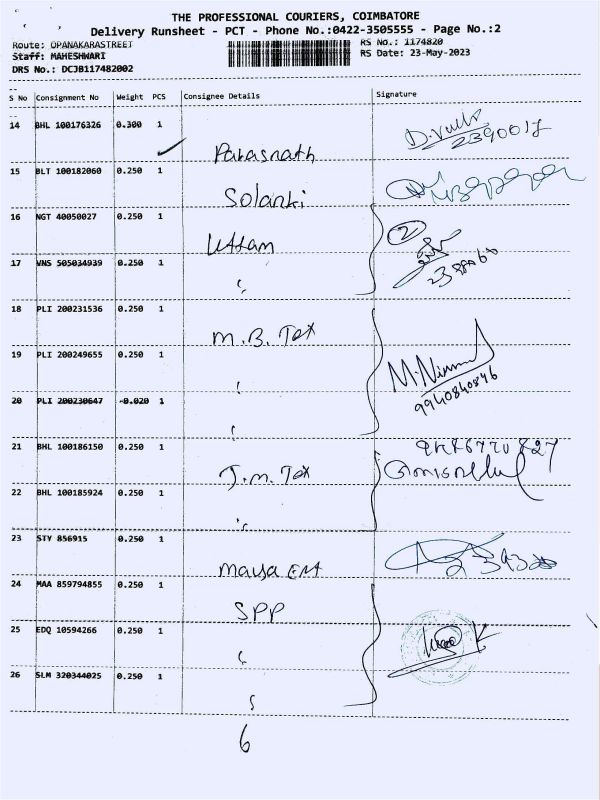 THE PROFESSIONAL COURIERS, COIMBATORE
Delivery Runsheet - PCT - Phone No.:0422-3505555 - Page No.:2
Route: OPANAKARASTREET RS No.: 1174820
Staff: MAHESHWARI RS Date: 23-May-2023
DRS No.: DCJB117482002
S No Consignment No Weight PCS Consignee Details Signature
14 BHL 100176326 0.300 1
Parasnath 2390017
15 BLT 100182060 0.250 1
Solanki
16 NGT 40050027 0.250 1
Uttam 2
17 VNS 505034939 0.250 1
18 PLI 200231536 0.250 1
M.B. Tex
19 PLI 200249655 0.250 1
M.Nirmal
9940840846
20 PLI 200230647 -0.020 1
21 BHL 100186150 0.250 1
J.M. Tex
22 BHL 100185924 0.250 1
23 STY 856915 0.250 1
Maya Ent
24 MAA 859794855 0.250 1
SPP
25 EDQ 10594266 0.250 1
26 SLM 320344025 0.250 1
6